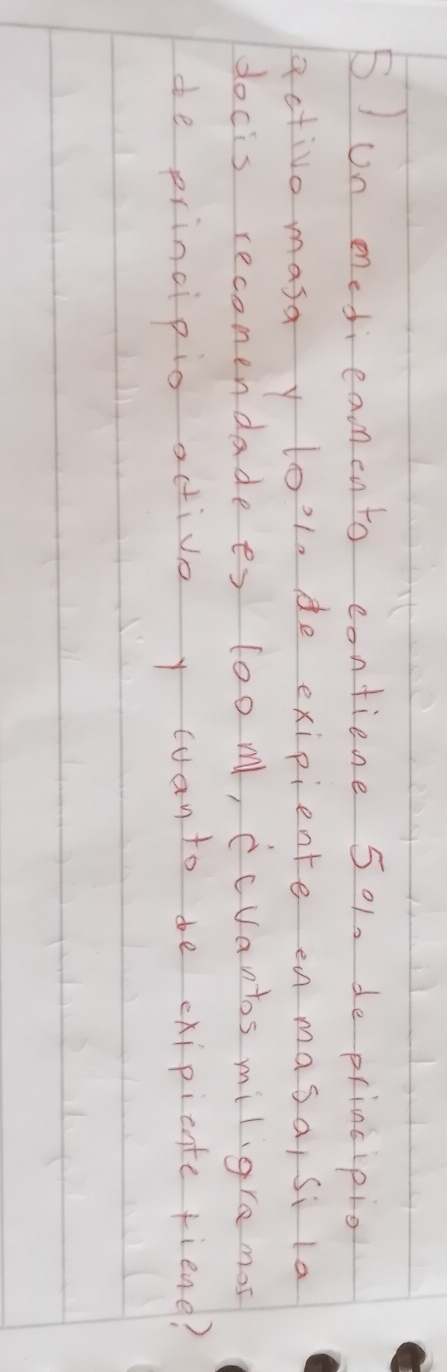 5) Un medicamento contiene 5% de principio
activo masa y 10% de exipiente en masa, si la
docis recomendade es 100 ml, ¿cuantos miligramos
de principio activo y cuanto de exipiente tiene?